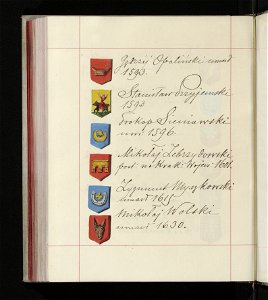 Jędrzej Opaliński umarł
1593.
Stanisław Przyjemski
1593
Prokop Sieniawski
um. 1596.
Mikołaj Zebrzydowski
post. na Krak. Wojew. 1601.
Zygmunt Myszkowski
umarł 1615.
Mikołaj Wolski
umarł 1630.